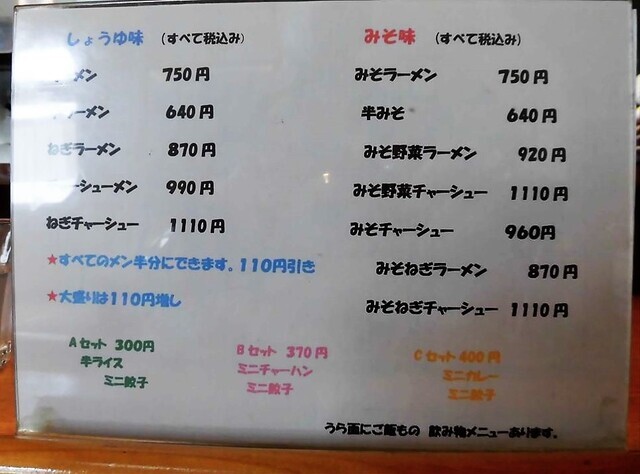 しょうゆ味 (すべて税込み)
メン 750円
ラーメン 640円
ねぎラーメン 870円
ーシューメン 990円
ねぎチャーシュー 1110円
★すべてのメン半分にできます。110円引き
★大盛りは110円増し
みそ味 (すべて税込み)
みそラーメン 750円
半みそ 640円
みそ野菜ラーメン 920円
みそ野菜チャーシュー 1110円
みそチャーシュー 960円
みそねぎラーメン 870円
みそねぎチャーシュー 1110円
Aセット 300円
半ライス
ミニ餃子
Bセット 370円
ミニチャーハン
ミニ餃子
Cセット 400円
ミニカレー
ミニ餃子
うら面にご飯もの 飲み物メニューあります。